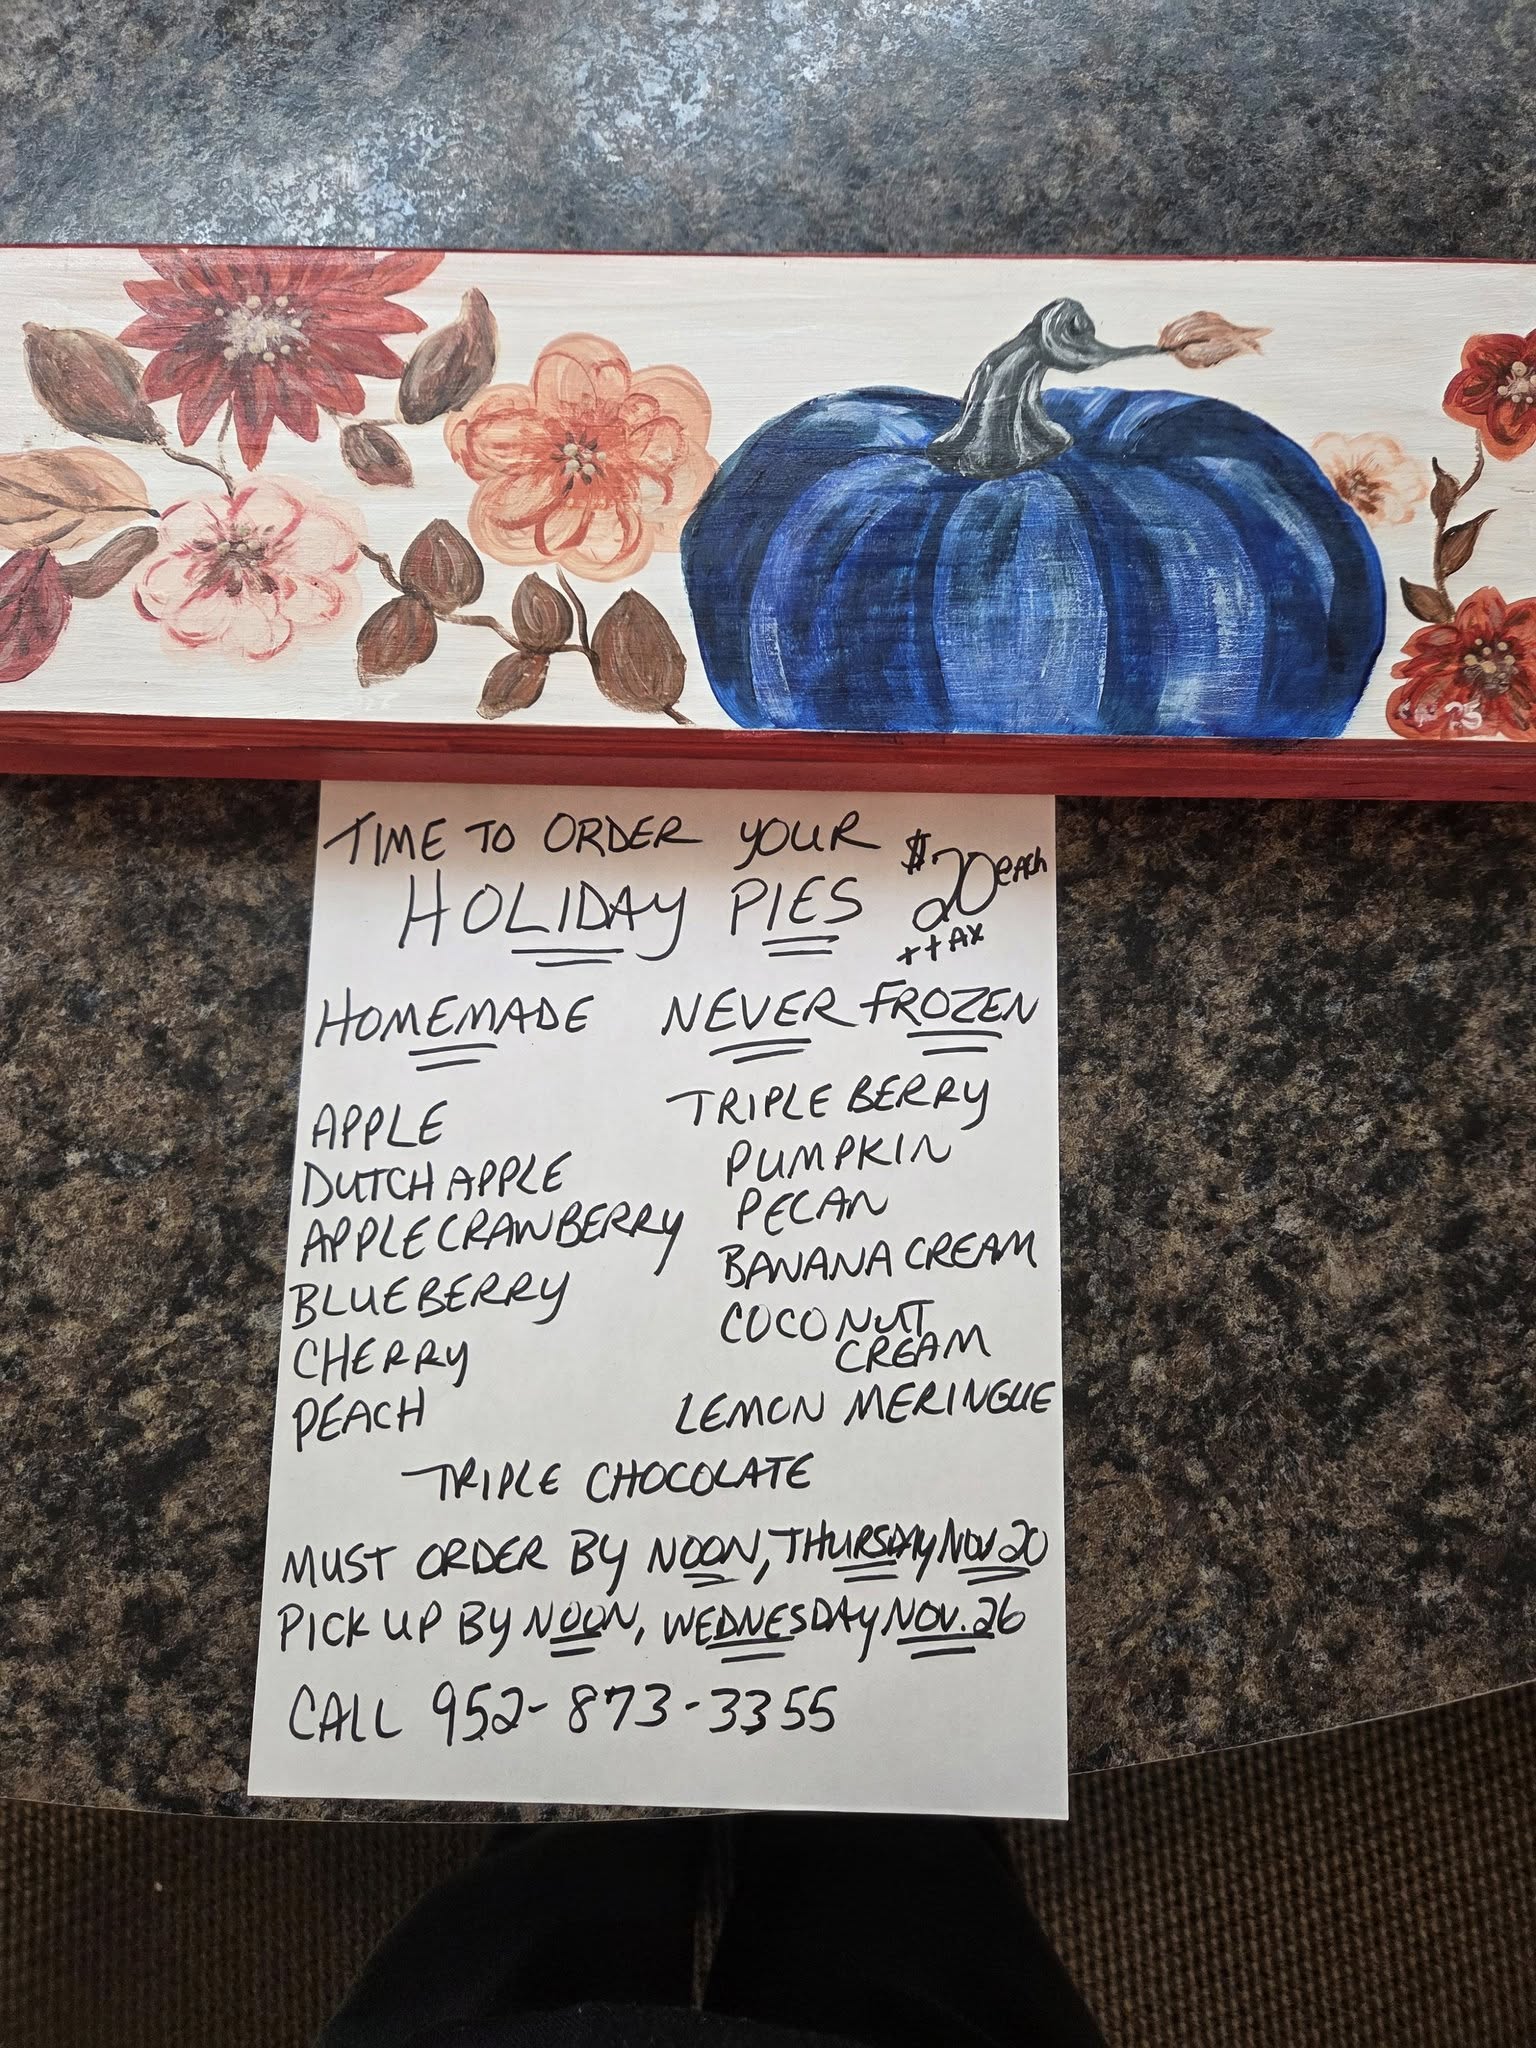 TIME TO ORDER YOUR
HOLIDAY PIES
$20 each
+ tAX
HOMEMADE NEVER FROZEN
APPLE
DUTCH APPLE
APPLE CRANBERRY
BLUEBERRY
CHERRY
PEACH
TRIPLE BERRY
PUMPKIN
PECAN
BANANA CREAM
COCONUT
CREAM
LEMON MERINGUE
TRIPLE CHOCOLATE
MUST ORDER BY NOON, THURSDAY NOV 20
PICK UP BY NOON, WEDNESDAY NOV. 26
CALL 952-873-3355